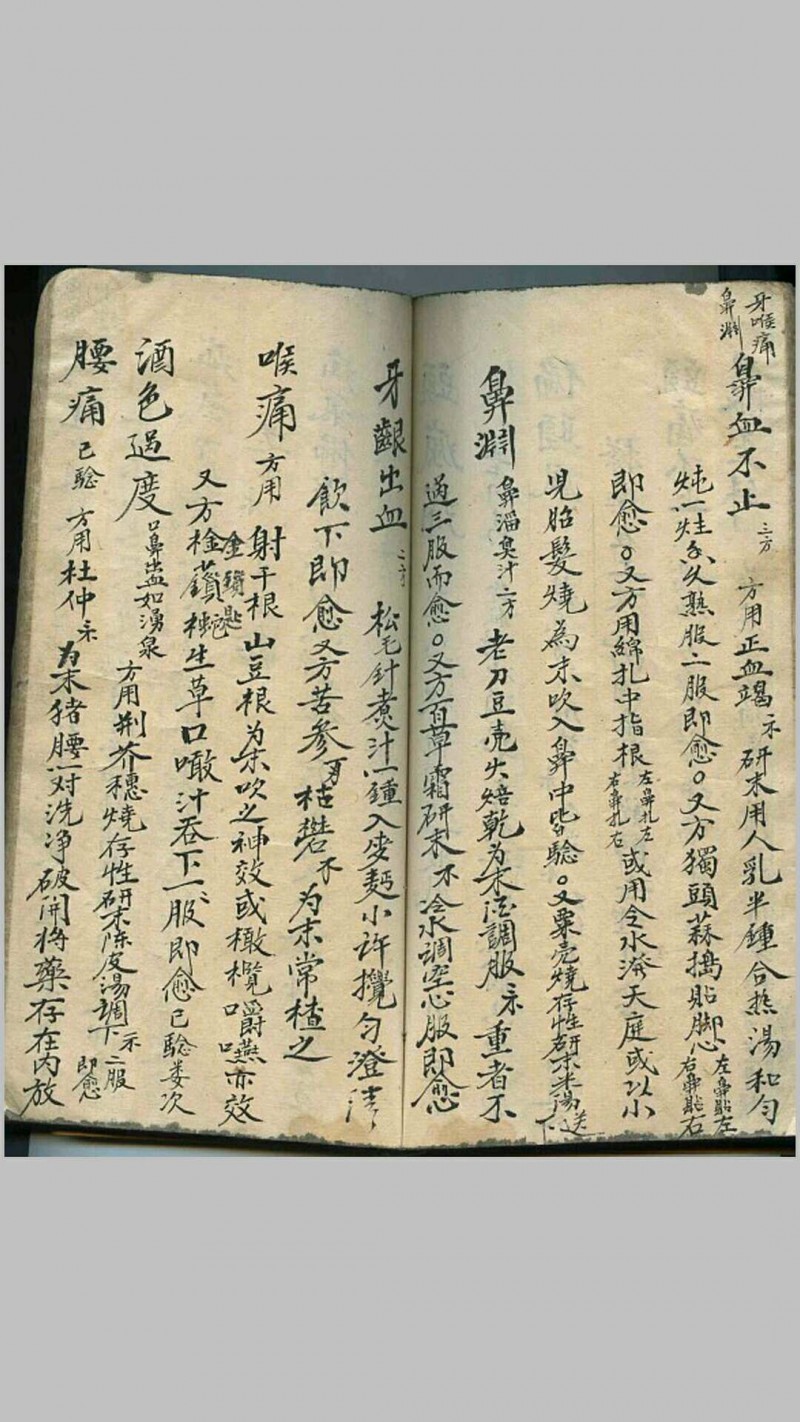 牙喉痛
鼻淵
鼻血不止 三方 方用正血竭 研末用人乳半鍾合热湯和勻
炖一炷久熟服二服即愈。又方獨頭蒜搗貼脚心 左鼻貼左 右鼻貼右
即愈。又方用綿扎中指根 左鼻扎左 右鼻扎右 或用冷水淋天庭或以小
児胎髮燒為末吹入鼻中皆驗。又粟壳燒存性研末米湯送下
鼻淵 鼻淄臭汁 二方 老刀豆壳火焙乾为末酒調服 重者不
過三服而愈。又方百草霜研末 冷水調空心服即愈
牙齦出血 二方 松毛針煮汁一鍾入麥麪小許攪勻澄清
飲下即愈又方苦参 枯礬 为末常楂之
喉痛 方用 射干根山豆根为末吹之神效或橄欖嚼嚥亦效
又方 金鎖匙 生草口噉汁吞下一服即愈已騐娄次
酒色過度 口鼻出血如湧泉 方用荆芥穗燒存性研末陈皮湯調下 二服 即愈
腰痛 已騐 方用杜仲 为末猪腰一对洗净破開将藥存在内放